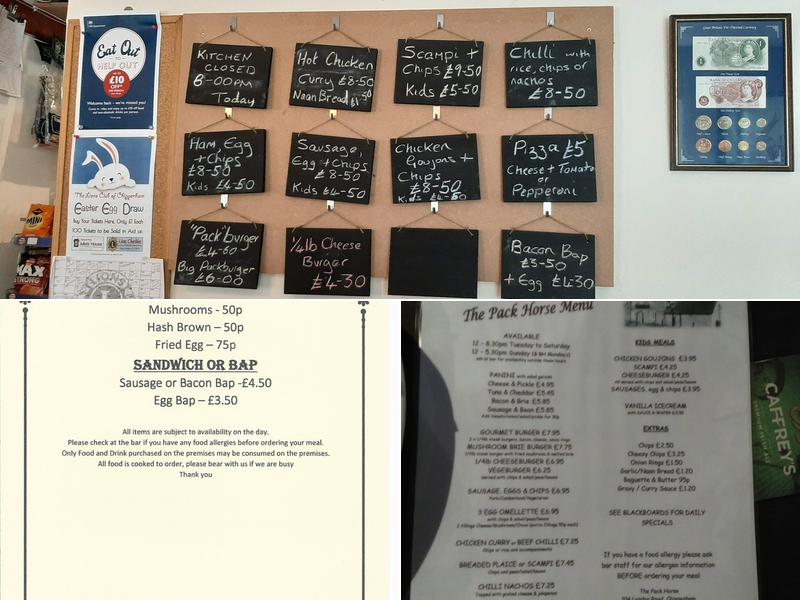 Eat Out
TO
HELP OUT
£10
OFF*
Welcome back - we've missed you!
The Lions Club of Chippenham
Easter Egg Draw
Buy Your Tickets Here, Only £1 Each
100 Tickets to be Sold in Aid of:
MINI
MAX
STRONG
KITCHEN
CLOSED
Today
Hot Chicken
Curry £8-50
Naan Bread
Scampi +
Chips £9-50
Kids £5-50
Chilli with
rice, chips or
nachos
£8-50
Ham, Egg
+ Chips
£8-50
Kids £4-50
Sausage,
Egg + Chips
£8-50
Kids £4-50
Chicken
Goujons +
Chips
£8-50
Kids £4-50
Pizza £5
Cheese + Tomato
or
Pepperoni
"Pack" burger
Big Packburger
£6-00
1/4lb Cheese
Burger
£4-30
Bacon Bap
+ Egg £4-30
Mushrooms - 50p
Hash Brown – 50p
Fried Egg – 75p
SANDWICH OR BAP
Sausage or Bacon Bap -£4.50
Egg Bap – £3.50
All items are subject to availability on the day.
Please check at the bar if you have any food allergies before ordering your meal.
Only Food and Drink purchased on the premises may be consumed on the premises.
All food is cooked to order, please bear with us if we are busy
Thank you
The Pack Horse Menu
AVAILABLE
12 - 8.30pm Tuesday to Saturday
12 - 5.30pm Sunday (& BH Mondays)
PANINI with salad garnish
Cheese & Pickle £4.95
Tuna & Cheddar £5.45
Bacon & Brie £5.85
Sausage & Bean £5.85
GOURMET BURGER £7.95
MUSHROOM BRIE BURGER £7.75
1/4lb CHEESEBURGER £6.95
VEGEBURGER £6.25
Served with chips & salad/peas/beans
SAUSAGE, EGGS & CHIPS £6.95
3 EGG OMELLETTE £6.95
with chips & salad/peas/beans
CHICKEN CURRY or BEEF CHILLI £7.25
Chips or rice and accompaniments
BREADED PLAICE or SCAMPI £7.45
Chips and peas/salad/beans
CHILLI NACHOS £7.25
Topped with grated cheese & jalapenos
KIDS MEALS
CHICKEN GOUJONS £3.95
SCAMPI £4.25
CHEESEBURGER £4.25
All served with chips and salad/peas/beans
SAUSAGES, egg & chips £3.95
VANILLA ICECREAM
with SAUCE & WAFER £2.50
EXTRAS
Chips £2.50
Cheesy Chips £3.25
Onion Rings £1.50
Garlic/Naan Bread £1.20
Baguette & Butter 95p
Gravy / Curry Sauce £1.20
SEE BLACKBOARDS FOR DAILY
SPECIALS
If you have a food allergy please ask
bar staff for our allergen information
BEFORE ordering your meal
The Pack Horse
CAFFREY'S